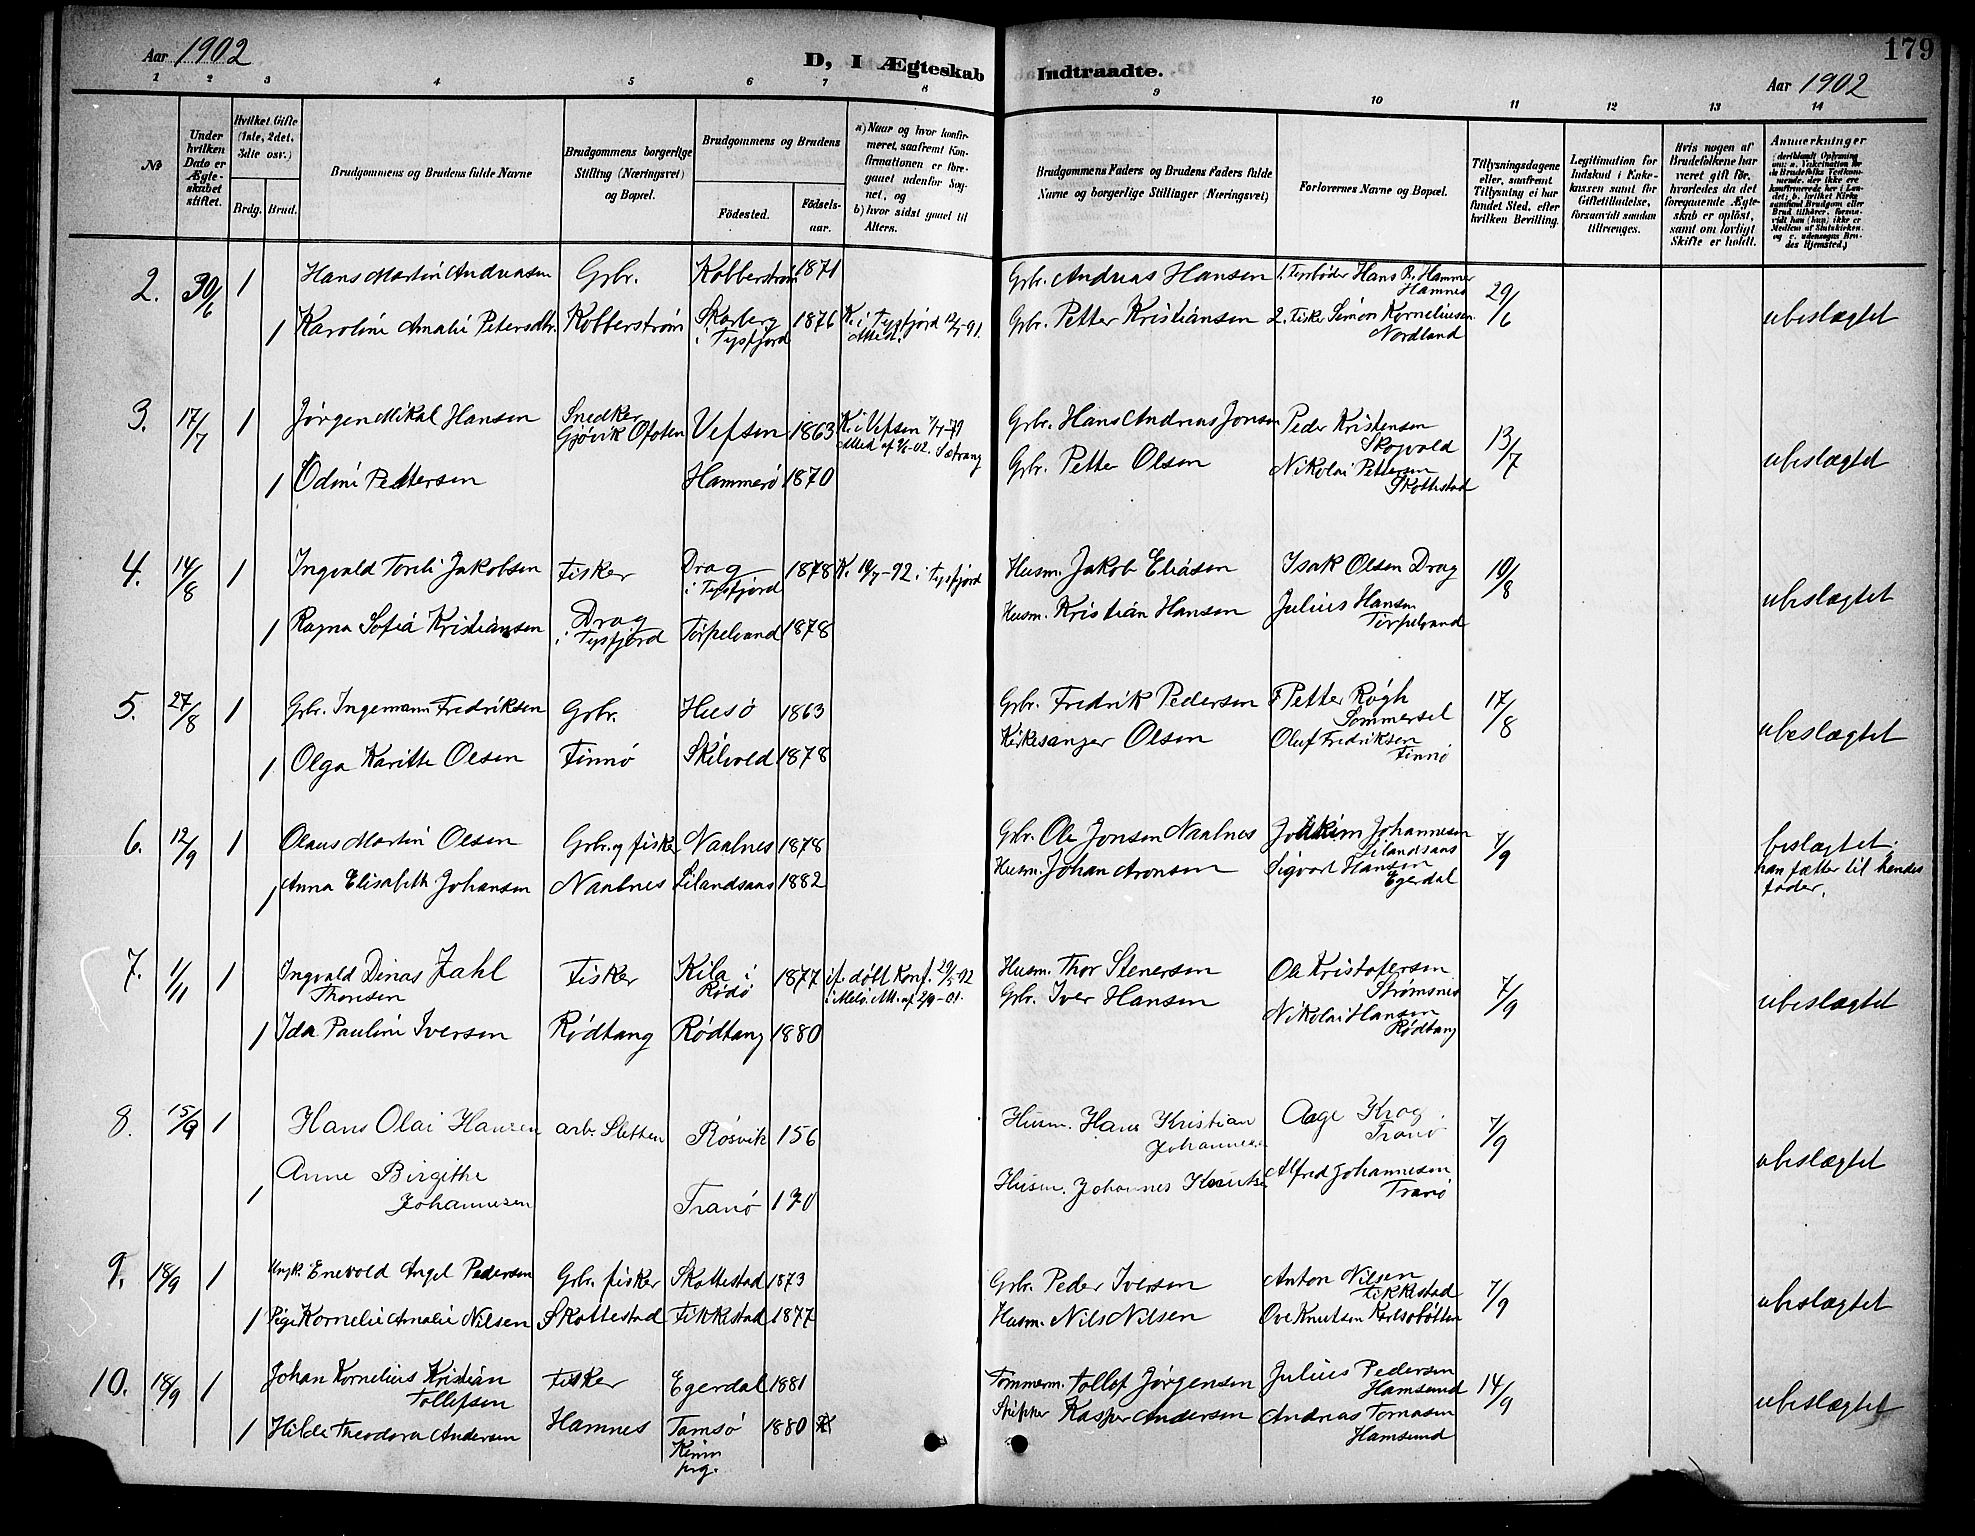 Aar 1902
D, I Ægteskab Indtraadte.
179
Aar 1902
1 2 3 4 5 6 7 8 9 10 11 12 13 14
№
Under hvilken Dato er Ægteskabet stiftet.
Hvilket Gifte (1ste, 2det, 3die osv.)
Brdg. Brud.
Brudgommens og Brudens fulde Navne
Brudgommens borgerlige Stilling (Næringsvei) og Bopæl.
Brudgommens og Brudens
Fødested.
Fødselsaar.
a) Naar og hvor konfirmeret, saafremt Konfirmationen er foregaaet udenfor Sognet, og
b) hvor sidst gaaet til Alters.
Brudgommens Faders og Brudens Faders fulde Navne og borgerlige Stillinger (Næringsvei)
Forlovernes Navne og Bopæl.
Tillysningsdagene eller, saafremt Tillysning ei har fundet Sted, efter hvilken Bevilling.
Legitimation for Indskud i Enkekassen samt for Giftetilladelse, forsaavidt saadan tiltrænges.
Hvis nogen af Brudefolkene har været gift før, hvorledes da det foregaaende Ægteskab er opløst, samt om lovligt Skifte er holdt.
Anmærkninger
2. 30/6 1 Hans Martin Andreasen Grbr. Kobberstrøm 1871 Grbr. Andreas Hansen 1. Hans R. Hammer
Hamnes 29/6
1 Karoline Amalie Petersdtr. Kobberstrøm Skarberg 1876 K. i Tysfjord 12/7-91. Grbr. Petter Kristiansen 2. Fisker Simon Korneliusen ubeslægtet
i Tysfjord Attest. Nordland
3. 17/7 1 Jørgen Mikal Hansen Snedker Vefsen 1863 K. i Vefsen Grbr. Hans Andreas Jonsen Peder Kristensen 13/7
Gjøvik Ofoten Skogvold
1 Odine Pettersen Hammerø 1870 Grbr. Petter Olsen Nikolai Pettersen ubeslægtet
Skottestad
4. 14/8 1 Ingvald Toreli Jakobsen Fisker Drag 1878 K. 10/7-92 i Tysfjord Husm. Jakob Eliasen Isak Olsen Drag 10/8
i Tysfjord
1 Ragna Sofia Kristiansen Drag Torpelvand 1878 Husm. Kristian Hansen Julius Hansen ubeslægtet
i Tysfjord Torpelvand
5. 27/8 1 Grbr. Ingemann Fredriksen Grbr. Husø 1863 Grbr. Fredrik Pedersen F Petter Røgh 17/8
Sommersel
1 Olga Karitte Olsen Finnø Skilvold 1878 Kirkesanger Olsen Oluf Fredriksen ubeslægtet
Finnø
6. 12/9 1 Olaus Martin Olsen Grbr. og fisker Naalnes 1878 Grbr. Ole Jonsen Naalnes Joakim Johannesen 7/9 beslægtet.
Lilandsaas
1 Anna Elisabeth Johansen Naalnes Lilandsaas 1882 Husm. Johan Aronsen Sigvart Hansen han fætter til hendes
Egerdal fader.
7. 1/11 1 Ingvald Dinas Zahl Fisker Kila i 1877 if. døbt Konf. 29/5-92 Husm. Thor Stenersen Ole Kristofersen 7/9
Thorsen Rødø i Melø. Att. af 2/9-01. Strømsnes
1 Ida Pauline Iversen Rødtang Rødtang 1880 Grbr. Iver Hansen Nikolai Hansen ubeslægtet
Rødtang
8. 15/9 1 Hans Olai Hansen arb. Sletten Røsvik 156 Husm. Hans Kristian Aage Krog. 7/9
Johannesen Tranø
1 Anne Birgithe Tranø 170 Husm. Johannes Knutsen Alfred Johannesen ubeslægtet
Johannesen Tranø
9. 18/9 1 Ungk. Enevold Angel Pedersen Grbr. fisker Skottestad 1873 Grbr. Peder Iversen Anton Nilsen 7/9
Fikkestad
1 Pige Kornelie Amalie Nilsen Skottestad Fikkestad 1877 Husm. Nils Nilsen Ove Knutsen Karlsøbotten ubeslægtet
10. 18/9 1 Johan Kornelius Kristian Fisker Egerdal 1881 Tømmerm. Tollof Jørgensen Julius Pedersen 14/9
Tollefsen Hamsund
1 Hilda Theodora Andersen Hamnes Tamsø 1880 Skipper Kasper Andersen Andreas Tomasen ubeslægtet
prg. Hamsund